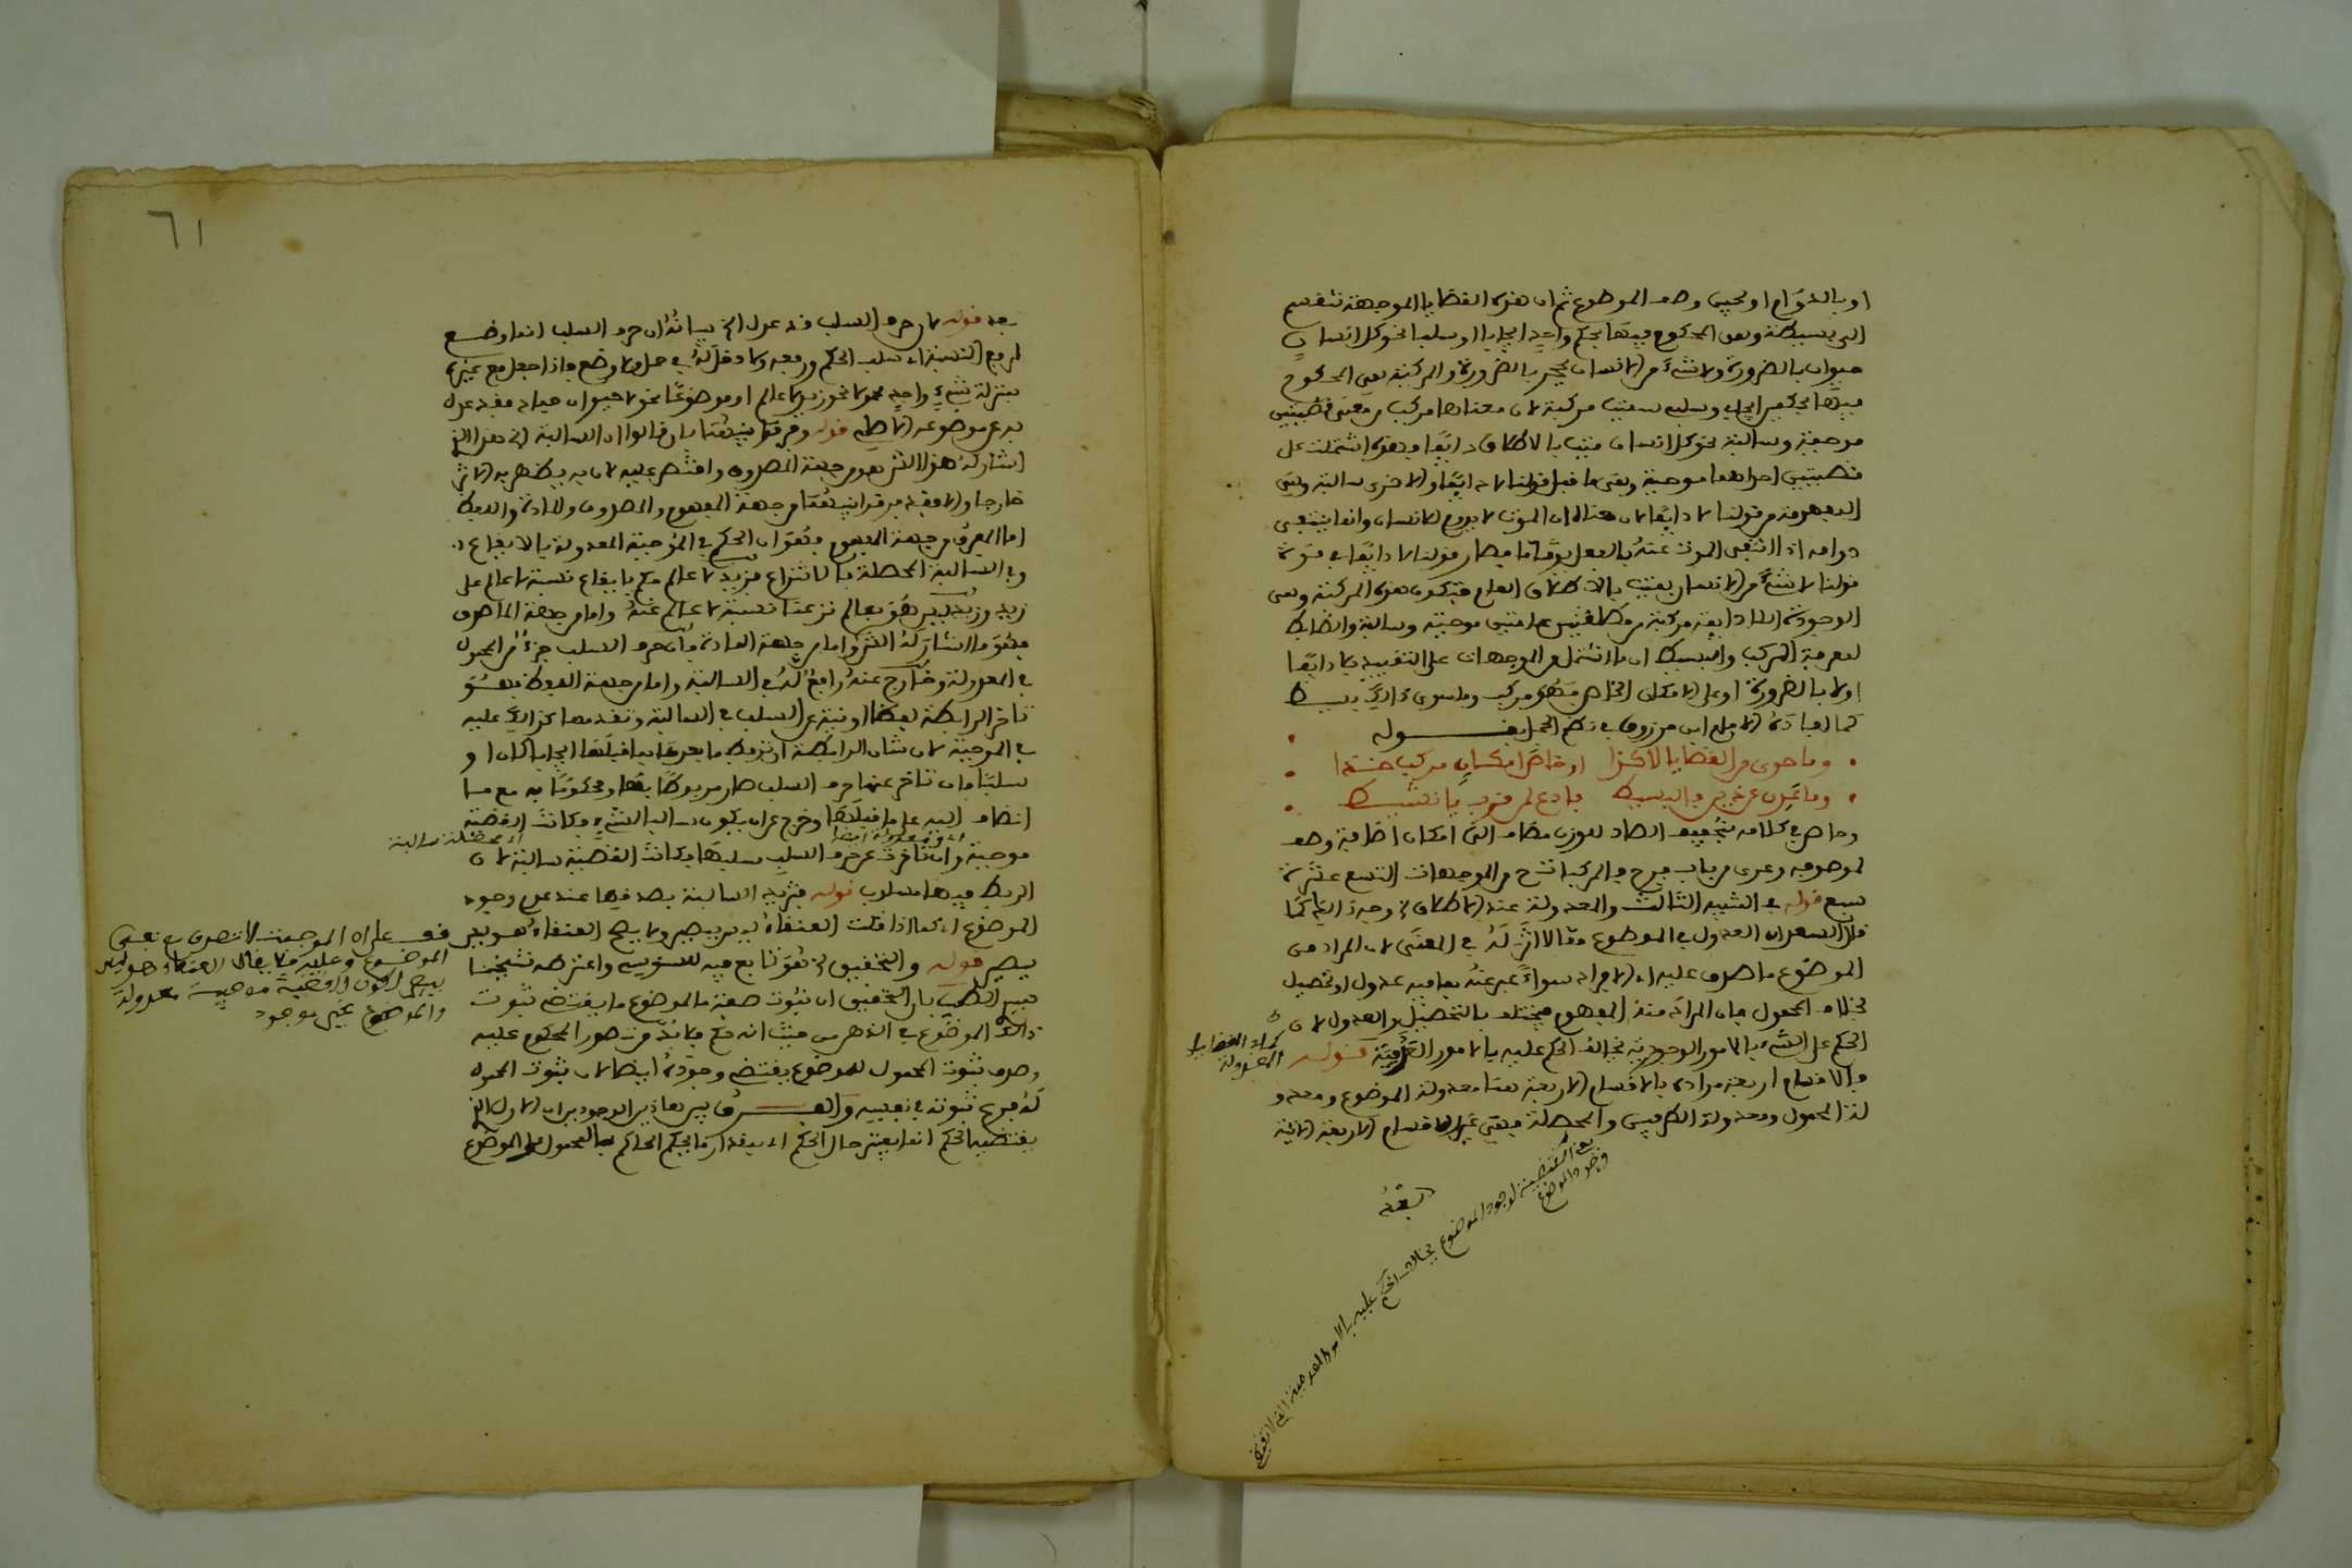 او بالدوام او بحين وصف الموضوع ثم ان هذه القضايا الموجهة تنقسم
الى بسيطة وهى المحكوم فيها بحكم واحد ايجابا او سلبا نحو كل انسان
حيوان بالضرورة ولا شىء من الانسان بحجر بالضرورة والمركبة هى المحكوم
فيها بحكمين ايجاب وسلب سميت مركبة لان معناها مركب من معنى قضيتين
موجبة وسالبة نحو كل انسان ميت بالاطلاق لا دايما فهذه اشتملت على
قضيتين احداهما موجبة وهى ما قبل قولنا لا دايما والاخرى سالبة وهى
المفهومة من قولنا لا دايما لان معناه ان الموت لا يدوم للانسان وانما ينتفى
دوامه اذا انتفى الموت عنه بالفعل يوما ما فصار قولنا لا دايما فى قوة
قولنا لا شىء من الانسان بميت بالاطلاق العام فتكون هذه المركبة وهى
الوجودية اللا دايمة مركبة من مطلقتين عامتين موجبة وسالبة والضابط
لمعرفة المركب والبسيط ان ما اشتمل من الموجهات على التقييد بلا دايما
او لا بالضرورة او على الامكان الخاص فهى مركب وما سوى ذالك بسيط
كما افاده الامام ابن مرزوق فى نظم الجمل بقوله
وما حوى من القضايا لا كذا او خاص امكان مركب خذا
وما عرى عن ذين فالبسيط فادع لمن قرب يا نشيط
وخاص فى كلامه بتخفيف الصاد للوزن مضاف الى امكان اضافة وصف
لموصوفه وعرى من باب فرح والمركبات من الموجهات التسع عشرة
سبع قوله فى التنبيه الثالث والمعدولة عند الاطلاق وجه ذالك كما
قال السعد ان العدول فى الموضوع مما لا اثر له فى المعنى لان المراد من
الموضوع ما صدق عليه اى الافراد سواء عبر عنه بما فيه عدول او تحصيل
بخلاف المحمول فان المراد منه المفهوم فيختلف بالتحصيل والعدول لان
الحكم على الشىء بالامور الوجودية يخالف الحكم عليه بالامور العدمية قوله
فالاقسام اربعة مراده بالاقسام الاربعة هنا معدولة الموضوع ومعدو
لة المحمول ومعدولة الطرفين والمحصلة فهى غير الاقسام الاربعة الاتية
اى القضايا
المعدولة
بعد
يعنى المقتضية لوجود الموضوع بخلاف الحكم عليه بالامور العدمية التى لا تقتضى
وجود الموضوع
٦١
بعد قوله لان حرف السلب قد عدل الخ بيانه ان حرف السلب انما وضع
لرفع النسبة اى سلب الحكم ورفعه ولا دخل له فى حمل ولا وضع فاذا جعل مع غيره
بمنزلة شىء واحد محمولا نحو زيد لا عالم او موضوعا نحو لا حيوان جماد فقد عدل
به عن موضوعه الاصلى قوله وفرقوا بينهما بان قالوا ان السالبة الخ هذا الذى
اشار له هو الفرق من جهة المصدوق واقتصر عليه لانه به يظهر به الاثر
خارجا والا فقد فرق بينهما من جهة المفهوم والمصدوق والمادة واللفظ
اما الفرق من جهة المفهوم فهو ان الحكم فى الموجبة المعدولة بالايقاع
وفى السالبة المحصلة بالانتزاع فزيد لا عالم حكم بايقاع نسبة لا عالم على
زيد وزيد ليس هو بعالم نزعنا نسبة لا عالم عنه واما من جهة الماصدق
فهو ما اشار له الش واما من جهة المادة فان حرف السلب جزء من المحمول
فى المعدولة وخارج عنه رافع له فى السالبة واما من جهة اللفظ فهو
تاخر الرابطة لفظا او نية عن السلب فى السالبة وتقدمها كذالك عليه
فى الموجبة لان شان الرابطة ان تربط ما بعدها بما قبلها ايجابا كان او
سلبا فان تاخر عنها حرف السلب صار مربوطا بها ومحكوما به مع ما
انضاف اليه على ما قبلها وخرج عن ان يكون سالبا لشىء فكانت القضية
موجبة وان تاخرت عن حرف السلب سلبها فكانت القضية سالبة لان
اى محصلة سالبة
الربط فيها مسلوب قوله فتزيد السالبة بصدقها عند عدم وجود
الموضوع اى كما اذا قلت العنقاء ليس ببصير ولا يصح العنقاء هو ليس
ببصير قوله والتحقيق الخ هو تابع فيه للسنوسى واعترضه شيخنا
سيدى الطيب بان التحقيق ان ثبوت صفة ما للموضوع ما يقتضى ثبوت
ذالك الموضوع فى الذهن من حيث انه حكم فلا بد من تصور المحكوم عليه
وصدق ثبوت المحمول للموضوع يقتضى وجوده ايضا لان ثبوت المحمول
له فرع ثبوته فى نفسه والفرق بين هاذين الوجودين ان الاول الذى
يقتضيه الحكم انما يعتبر حال الحكم اى بمقدار ما يحكم الحاكم بالمحمول على الموضوع
قف على ان الموجبة لا تصدق مع نفى
الموضوع وعليه فلا يقال العنقاء هو ليس
ببصير لكون القضية موجبة معدولة
والموضوع غير موجود